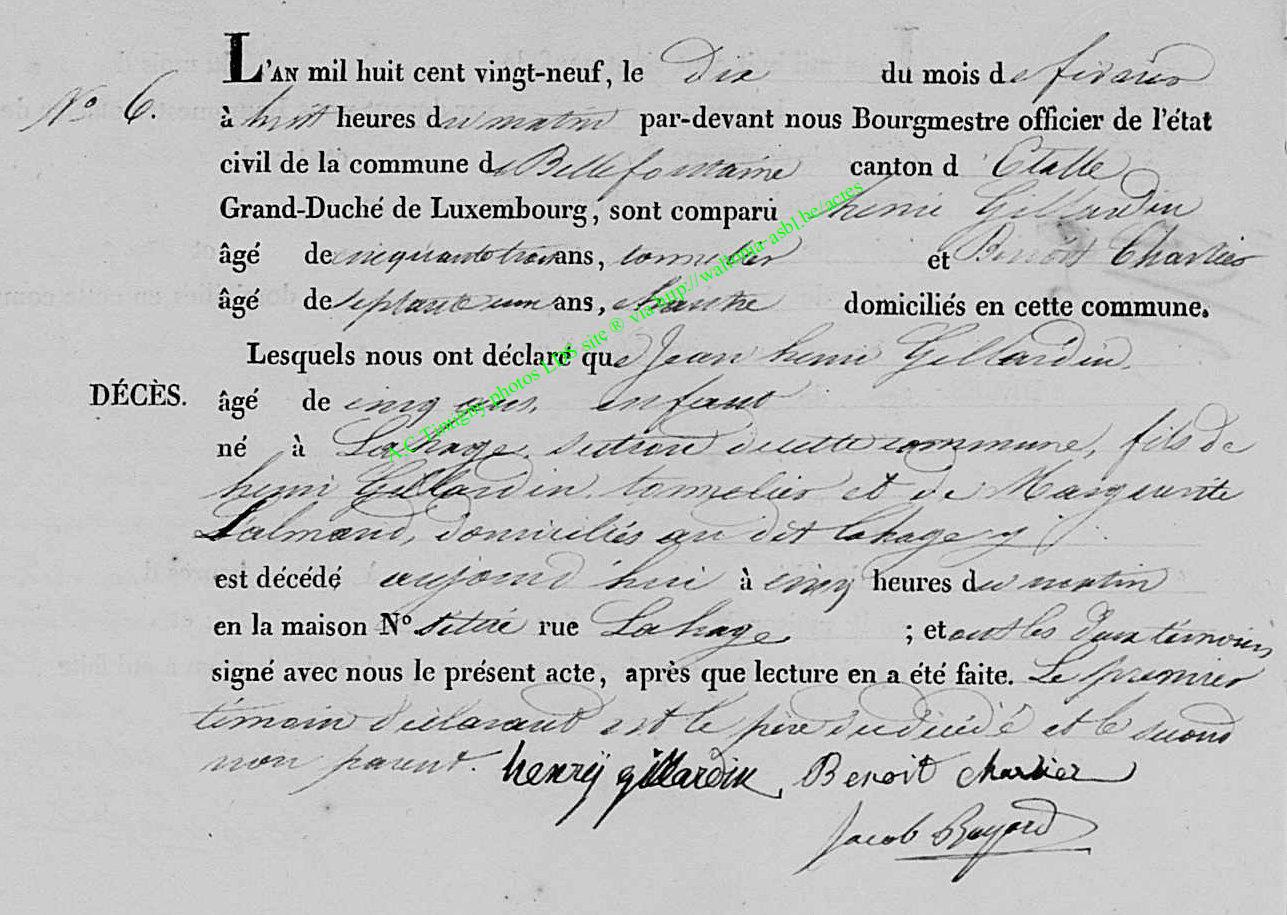 L'AN mil huit cent vingt-neuf, le dix du mois de février
N° 6. à huit heures du matin par-devant nous Bourgmestre officier de l'état
civil de la commune de Bellefontaine canton d' Etalle
Grand-Duché de Luxembourg, sont comparu henri Gillardin
âgé de cinquante trois ans, tonnelier et Benoit Charlier
âgé de septante un ans, chantre domiciliés en cette commune.
Lesquels nous ont déclaré que Jean henri Gillardin.
DÉCÈS. âgé de cinq ans, enfant
né à Lahage, section de cette commune, fils de
henri Gillardin tonnelier et de Marguerite
Lalmand, domiciliés au dit lahage
est décédé aujourd'hui à cinq heures du matin
en la maison N° située rue Lahage ; et ont les deux témoins
signé avec nous le présent acte, après que lecture en a été faite. Le premier
témoin déclarant est le père du décédé et le second
non parent. henrÿ gillardin, Benoit charlier
Jacob
A.C Tintigny photos LDS site ® via http://wallonia-asbl.be/actes